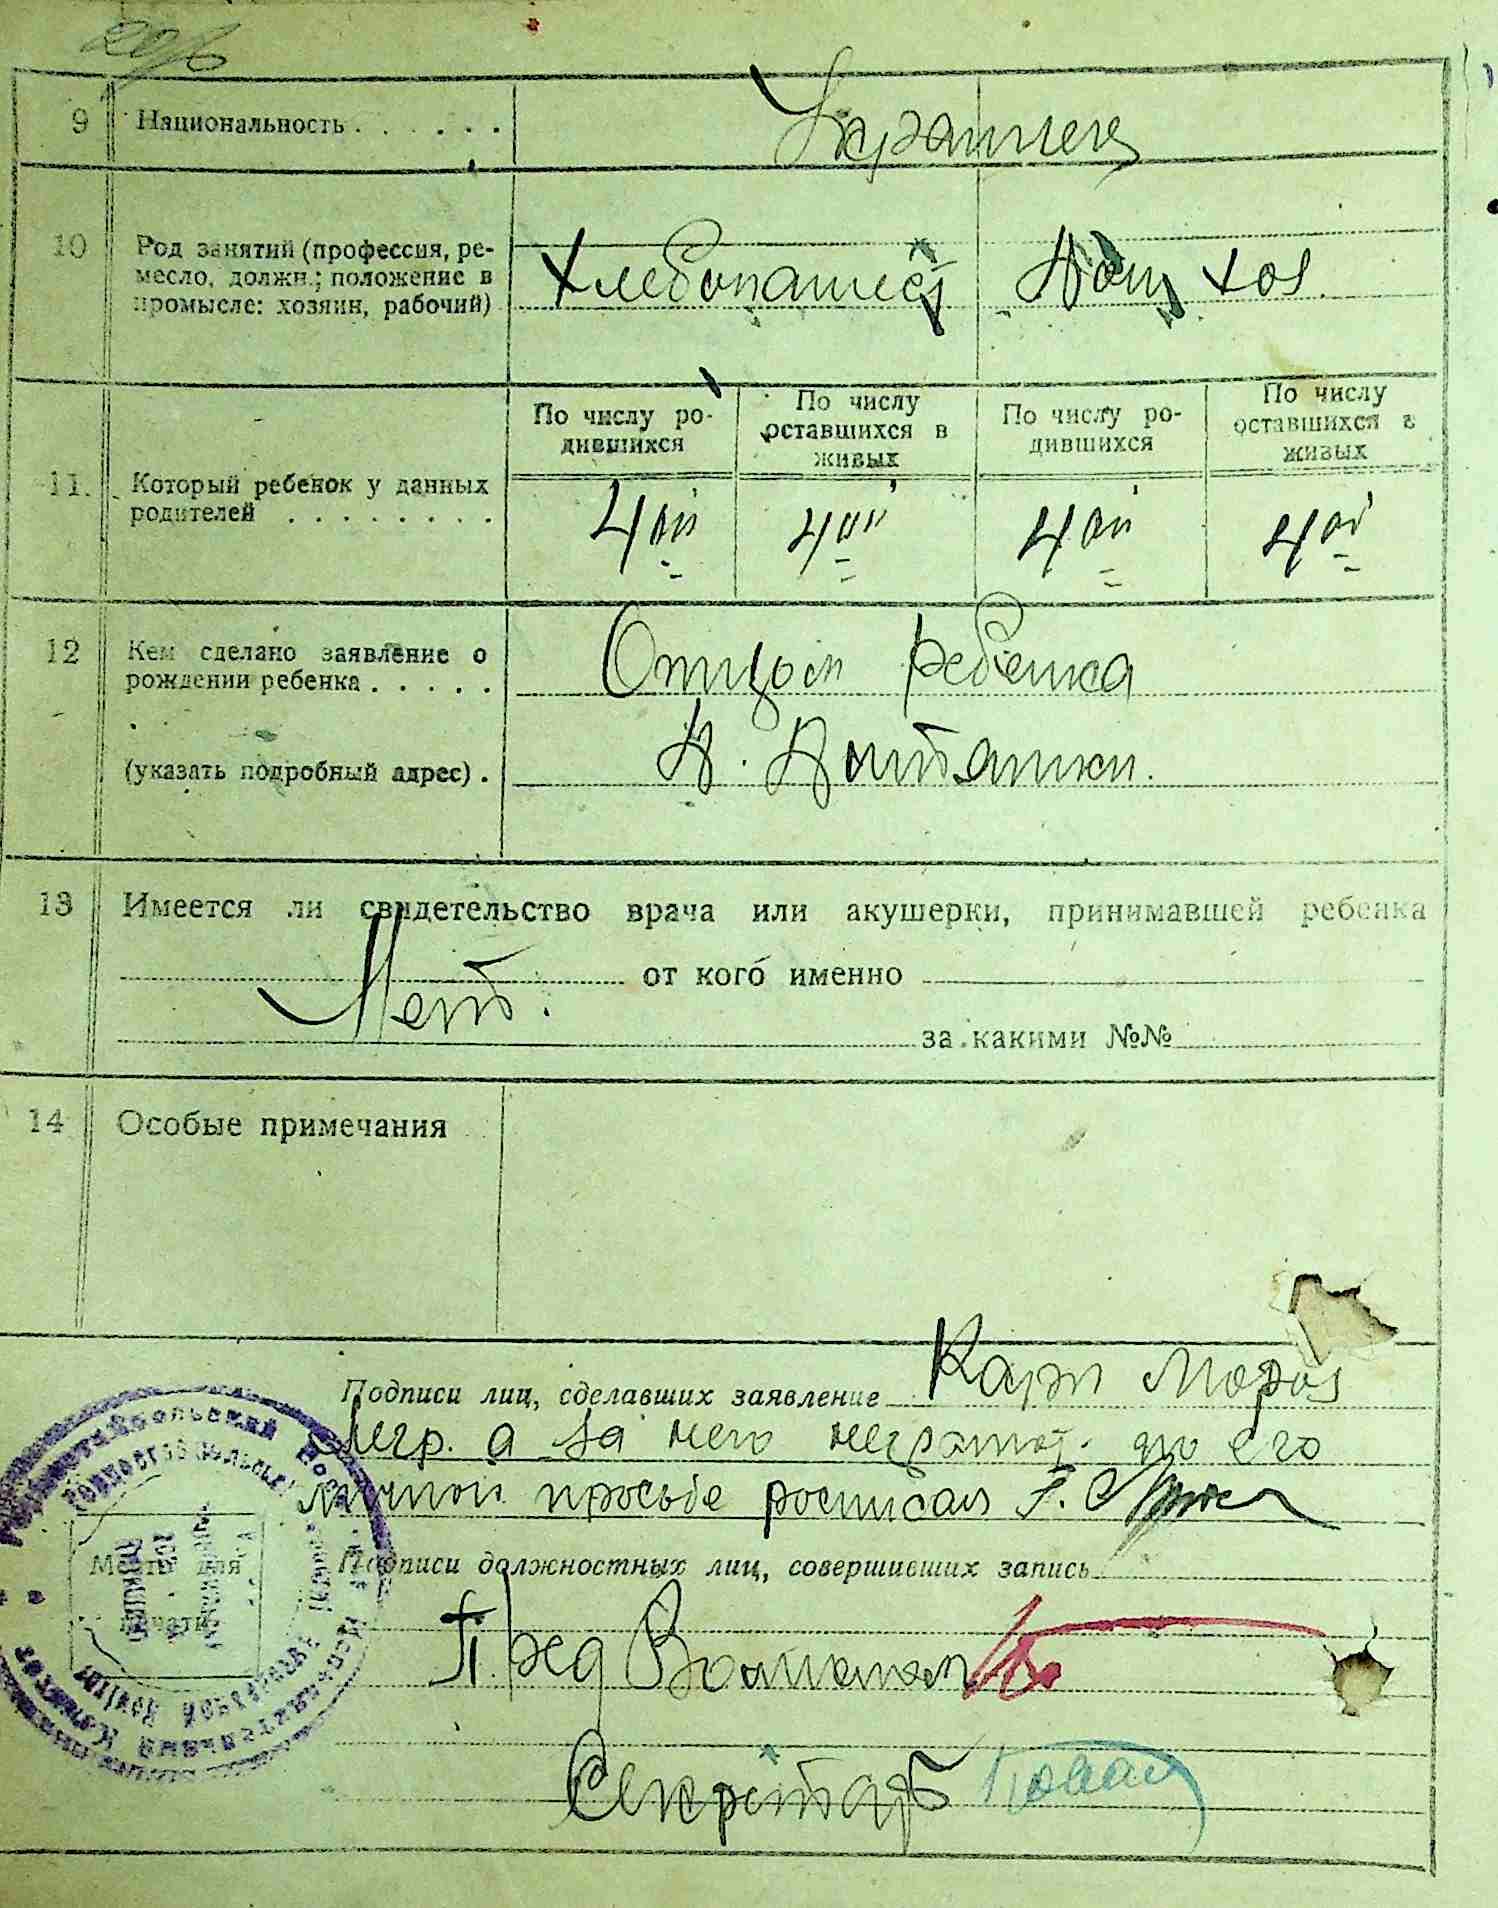 9 Национальность . . . . . . Украинец
10 Род занятий (профессия, ре-
месло, должн.; положение в
промысле: хозяин, рабочий)
Хлебопашест Дом. хоз.
По числу ро-
дившихся
По числу
оставшихся в
живых
По числу ро-
дившихся
По числу
оставшихся в
живых
11. Который ребенок у данных
родителей . . . . . . . .
4ый 4ый 4ый 4ый
12 Кем сделано заявление о
рождении ребенка . . . . .
(указать подробный адрес) .
Отцом ребенка
13 Имеется ли свидетельство врача или акушерки, принимавшей ребенка
Нет. от кого именно
за какими №№
14 Особые примечания
Подписи лиц, сделавших заявление Карп Мороз
негр. а за него неграмот. по его
личной просьбе росписал
Место для
печати
Подписи должностных лиц, совершивших запись
Пред
Секретарь